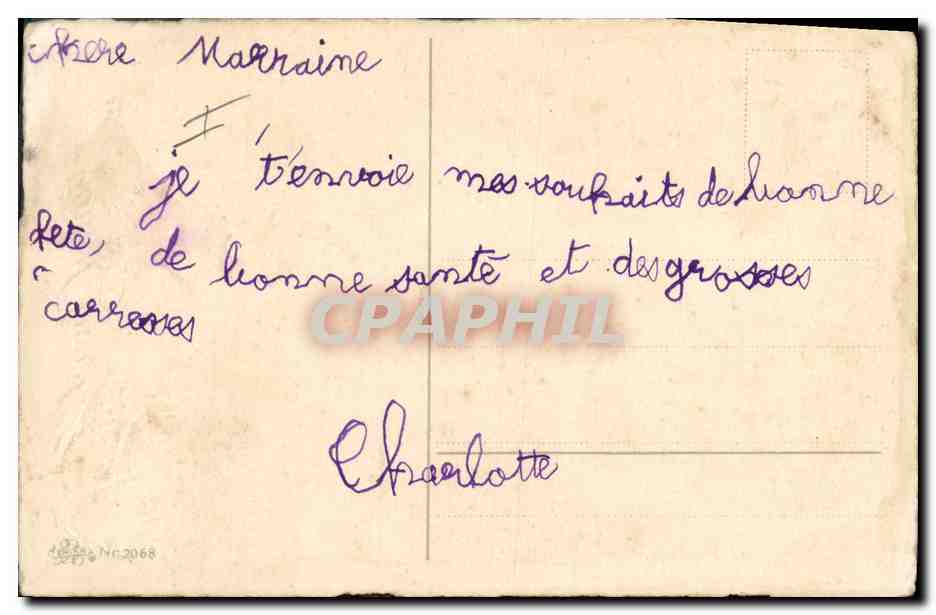 chere Marraine
je t'envoie mes souhaits de bonne
fete, de bonne santé et des grosses
carresses
CPAPHIL
Charlotte
Nr. 2068